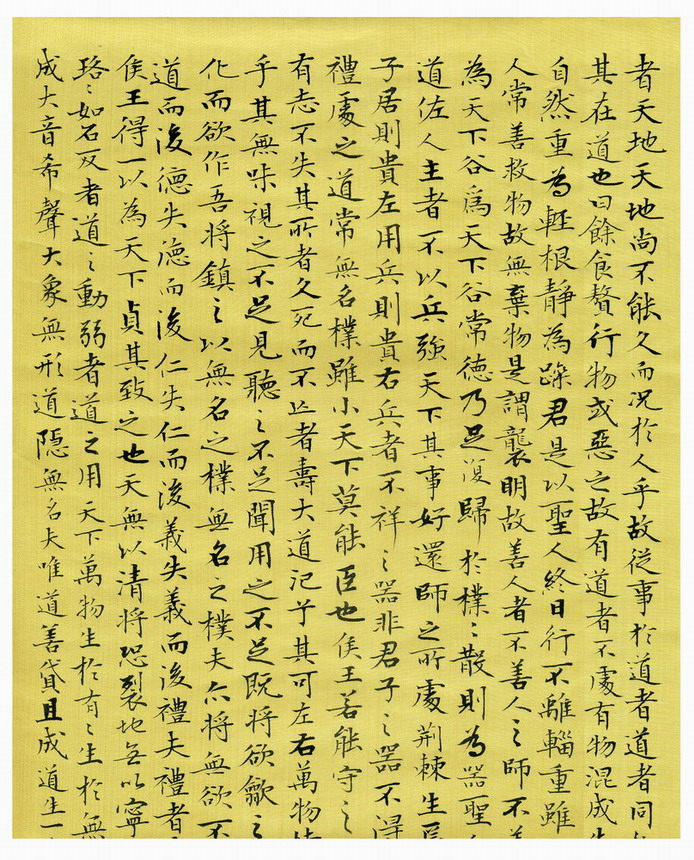 者天地天地尚不能久而况於人乎故従事於道者道者同
其在道也曰餘食贅行物或惡之故有道者不處有物混成
自然重為輕根靜為躁君是以聖人終日行不離輜重雖
人常善救物故無棄物是謂襲明故善人者不善人之師不
為天下谷爲天下谷常德乃足復歸於樸〻散則為器聖
道佐人主者不以兵強天下其事好還師之所處荊棘生焉
子居則貴左用兵則貴右兵者不祥之器非君子之器不得
禮處之道常無名樸雖小天下莫能臣也侯王若能守之
有志不失其所者久死而不亡者壽大道氾兮其可左右萬物
乎其無味視之不足見聽之不足聞用之不足既將欲歙之
化而欲作吾將鎮之以無名之樸無名之樸夫亦將無欲不
道而後德失德而後仁失仁而後義失義而後禮夫禮者
侯王得一以為天下貞其致之也天無以清將恐裂地無以寧
珞〻如石反者道之動弱者道之用天下萬物生於有〻生於無
成大音希聲大象無形道隱無名夫唯道善貸且成道生一